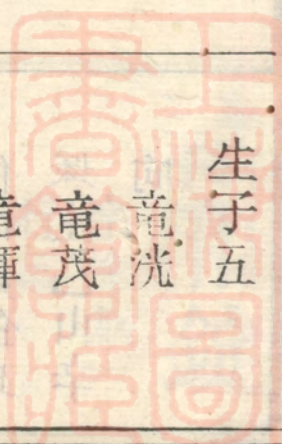 生子五
竜洸
竜茂
竜暉